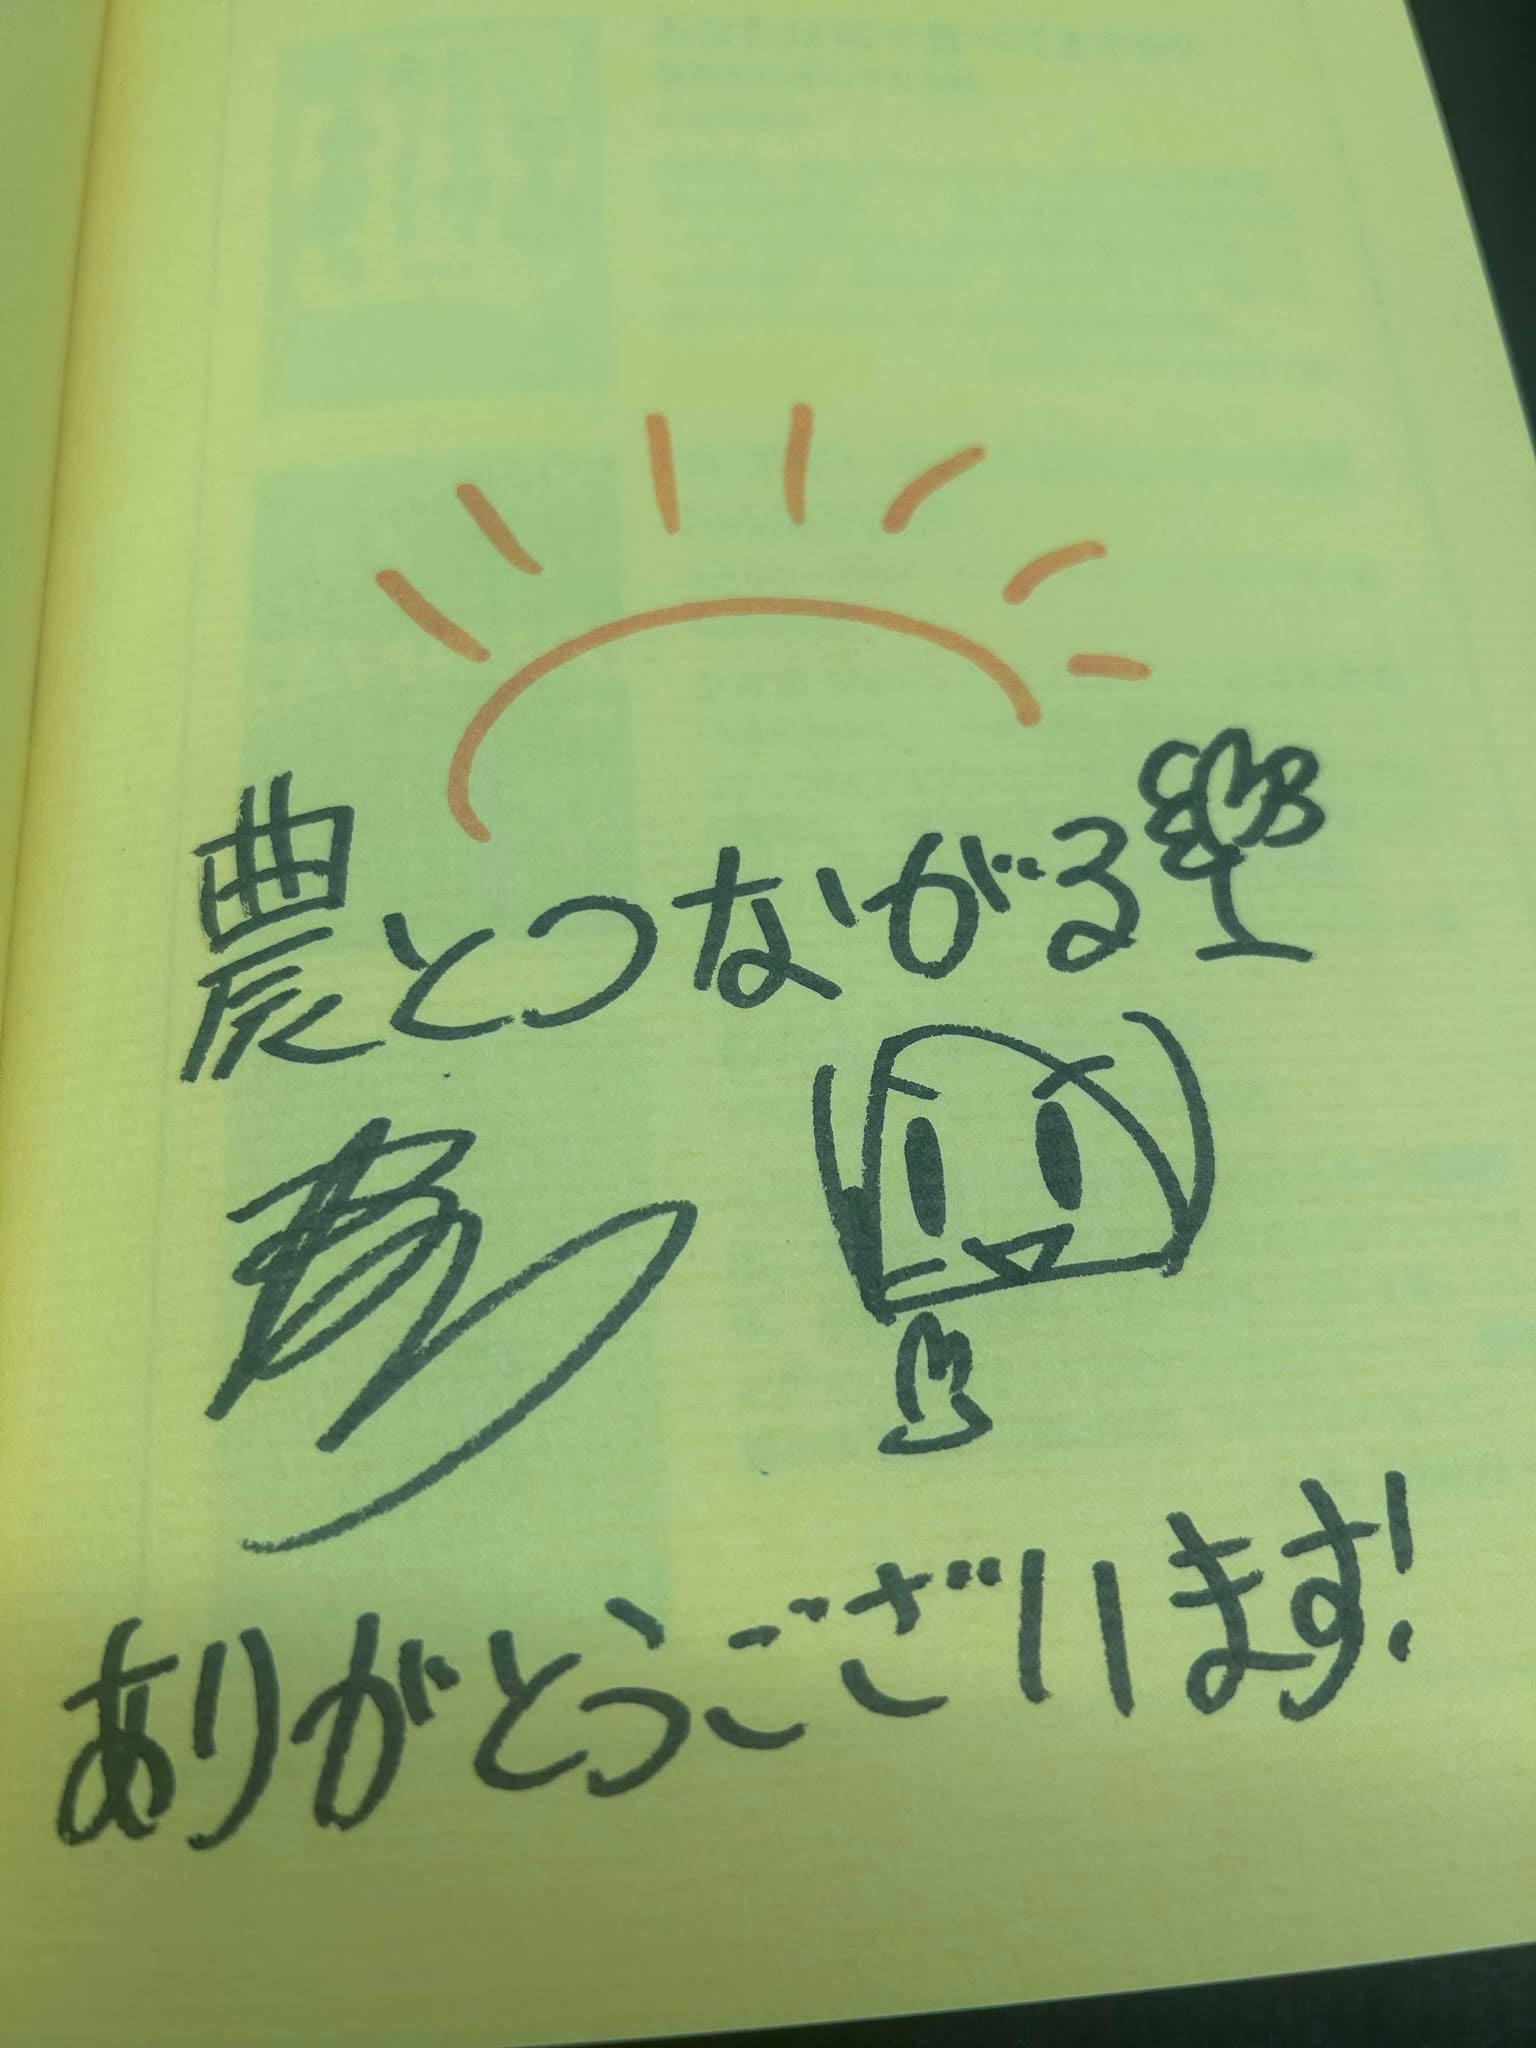 農とつながる
ありがとうございます!